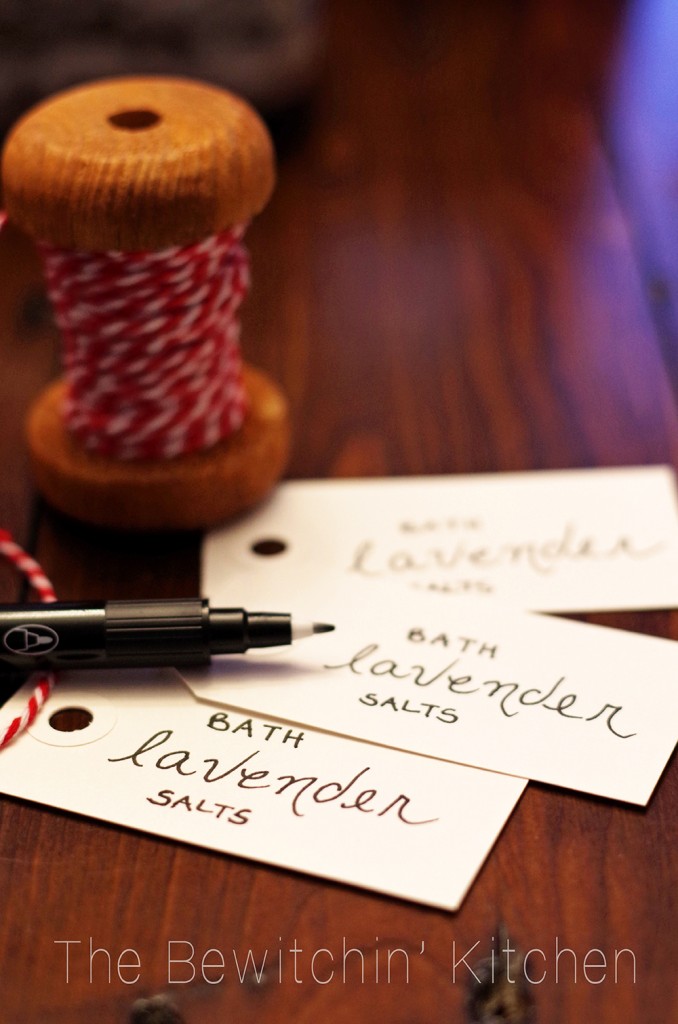 BATH
lavender
SALTS
BATH
lavender
SALTS
BATH
lavender
SALTS
The Bewitchin' Kitchen